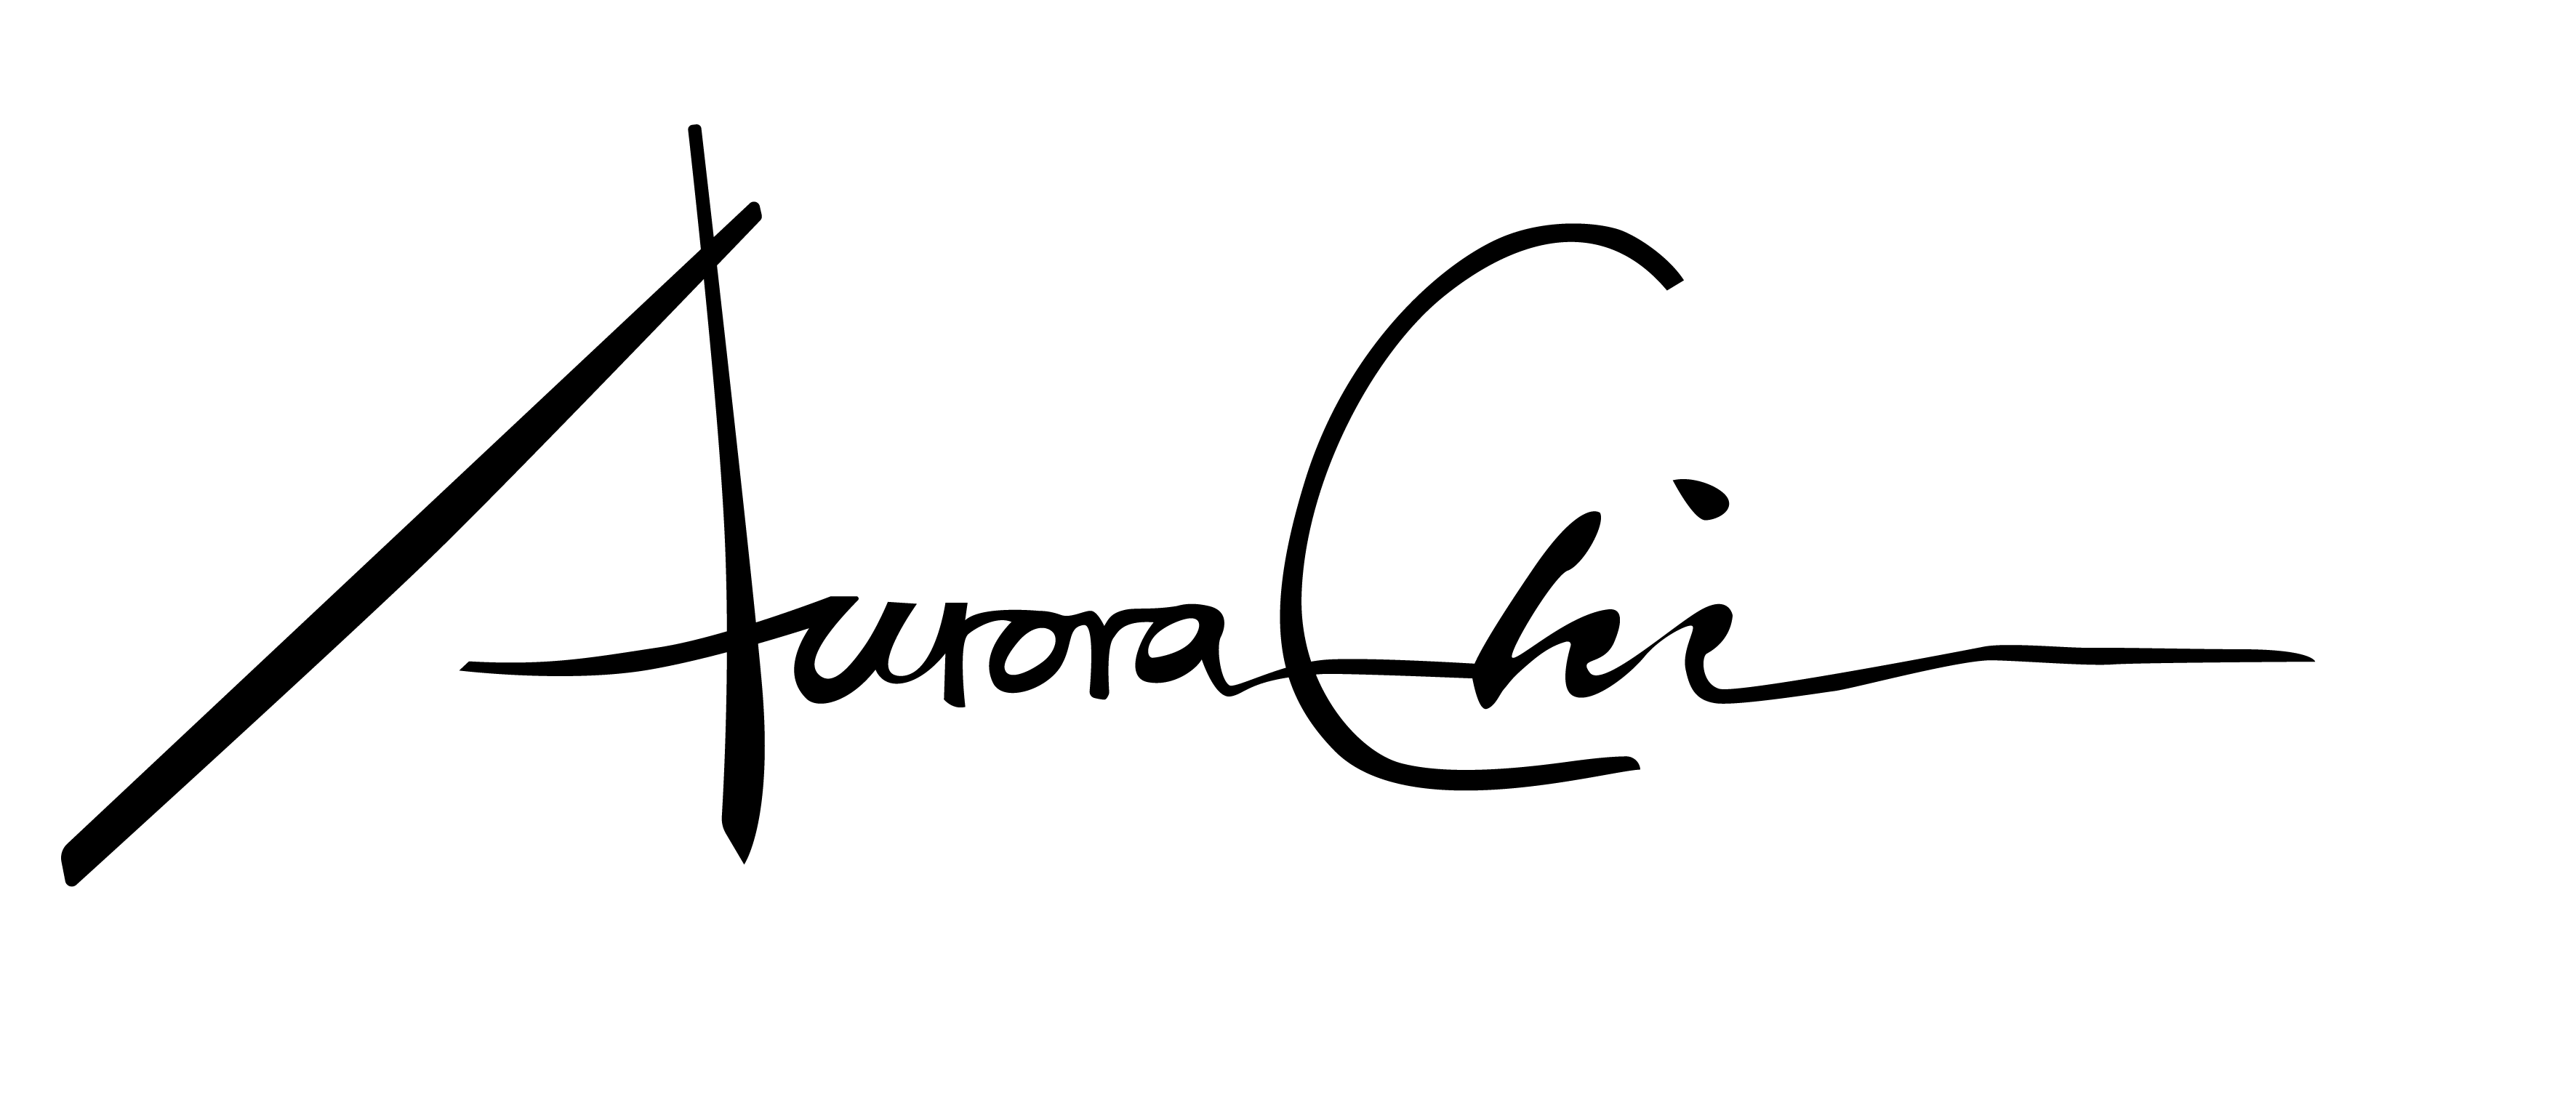 Aurora Chi